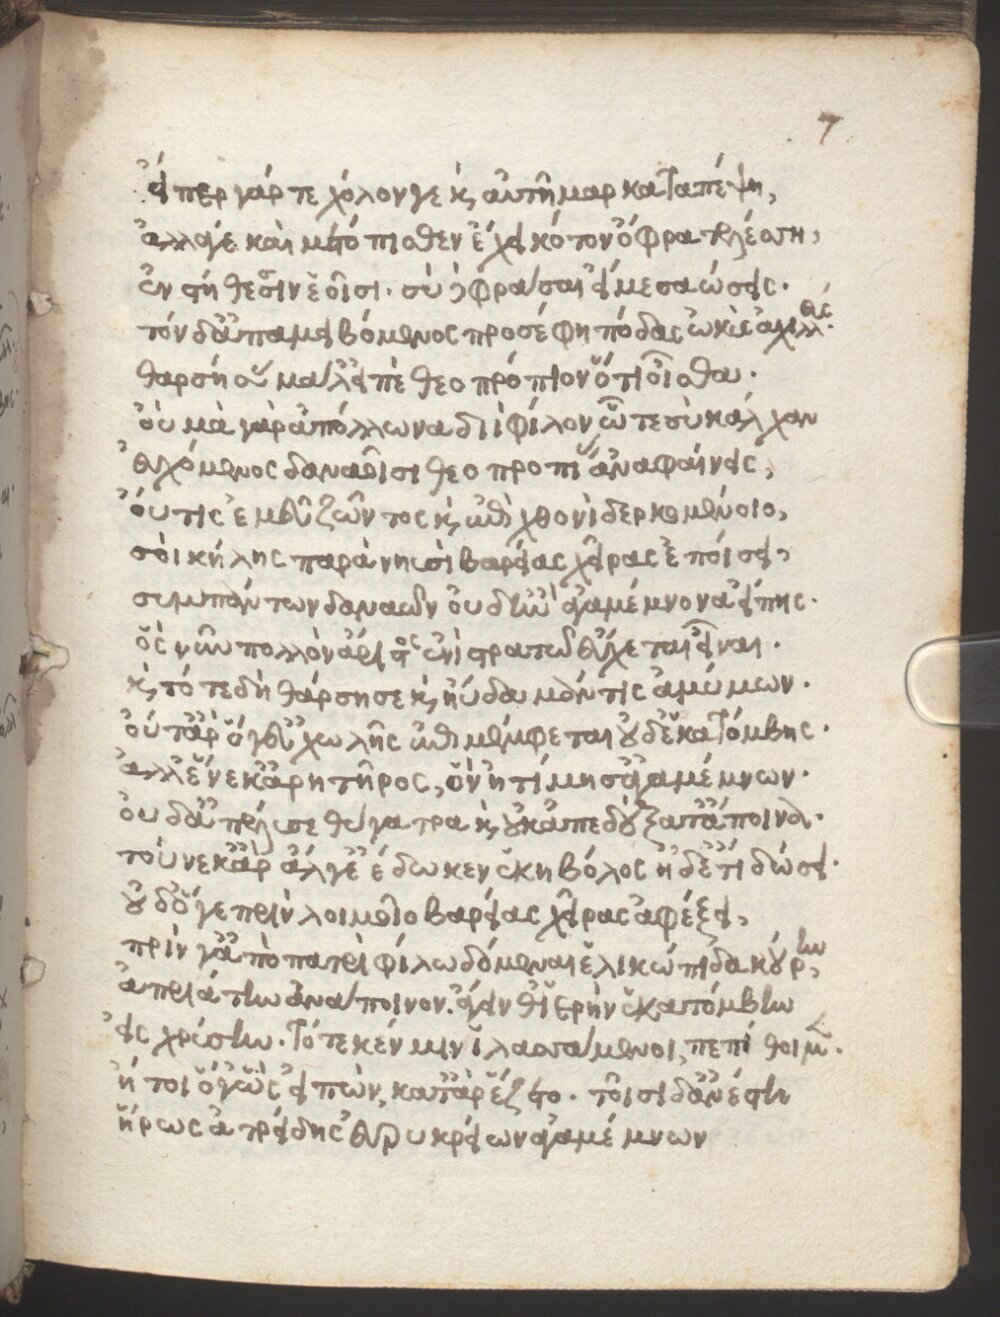 7
εἴπερ γάρ τε χόλον γε κ, αὐτῆμαρ καταπέψη,
ἀλλάγε καὶ μετόπισθεν ἔχει κότον ὄφρα τελέσση,
ἐν στήθεσσιν ἑοῖσι. σὺ φράσαι εἴ με σαώσεις.
τὸν δ' ἀπαμειβόμενος προσέφη πόδας ὠκὺς ἀχιλλεύς.
θαρσήσας μάλ' εἰπὲ θεοπρόπιον ὅτι οἶσθα.
οὐ μὰ γὰρ ἀπόλλωνα διὶ φίλον ὧτε σὺ κάλχαν
εὐχόμενος δαναοῖσι θεοπροπίας ἀναφαίνεις,
οὔτις ἐμεῦ ζῶντος κ, ἐπὶ χθονὶ δερκομένοιο,
σοὶ κοίλης παρὰ νηυσὶ βαρείας χεῖρας ἐποίσει,
συμπάντων δαναῶν οὐδ' ἢν ἀγαμέμνονα εἴπης.
ὃς νῦν πολλὸν ἄριστος ἐνὶ στρατῷ εὔχεται εἶναι.
κ, τότε δὴ θάρσησε κ, ηὔδα μάντις ἀμύμων.
οὔτ' ἂρ ὅγ' εὐχωλῆς ἐπιμέμφεται οὐδ' ἑκατόμβης.
ἀλλ' ἕνεκ' ἀρητῆρος, ὃν ἠτίμησ' ἀγαμέμνων.
οὐδ' ἀπέλυσε θύγατρα κ, οὐκ ἀπεδέξατ' ἄποινα.
τοὔνεκ' ἂρ ἄλγε' ἔδωκεν ἑκηβόλος ἠδ' ἔτι δώσει.
οὐδ' ὅγε πρὶν λοιμοῖο βαρείας χεῖρας ἀφέξει,
πρίν γ' ἀπὸ πατρὶ φίλω δόμεναι ἑλικώπιδα κούρην,
ἀπριάτην ἀνάποινον. ἄγειν θ' ἱερὴν ἑκατόμβην
εἰς χρύσην. τότε κέν μιν ἱλασσάμενοι, πεπίθοιμεν.
ἤτοι ὅγ' ὣς εἰπὼν, κατ' ἂρ ἕζετο. τοῖσι δ' ἀνέστη
ἥρως ἀτρείδης εὐρυκρείων ἀγαμέμνων